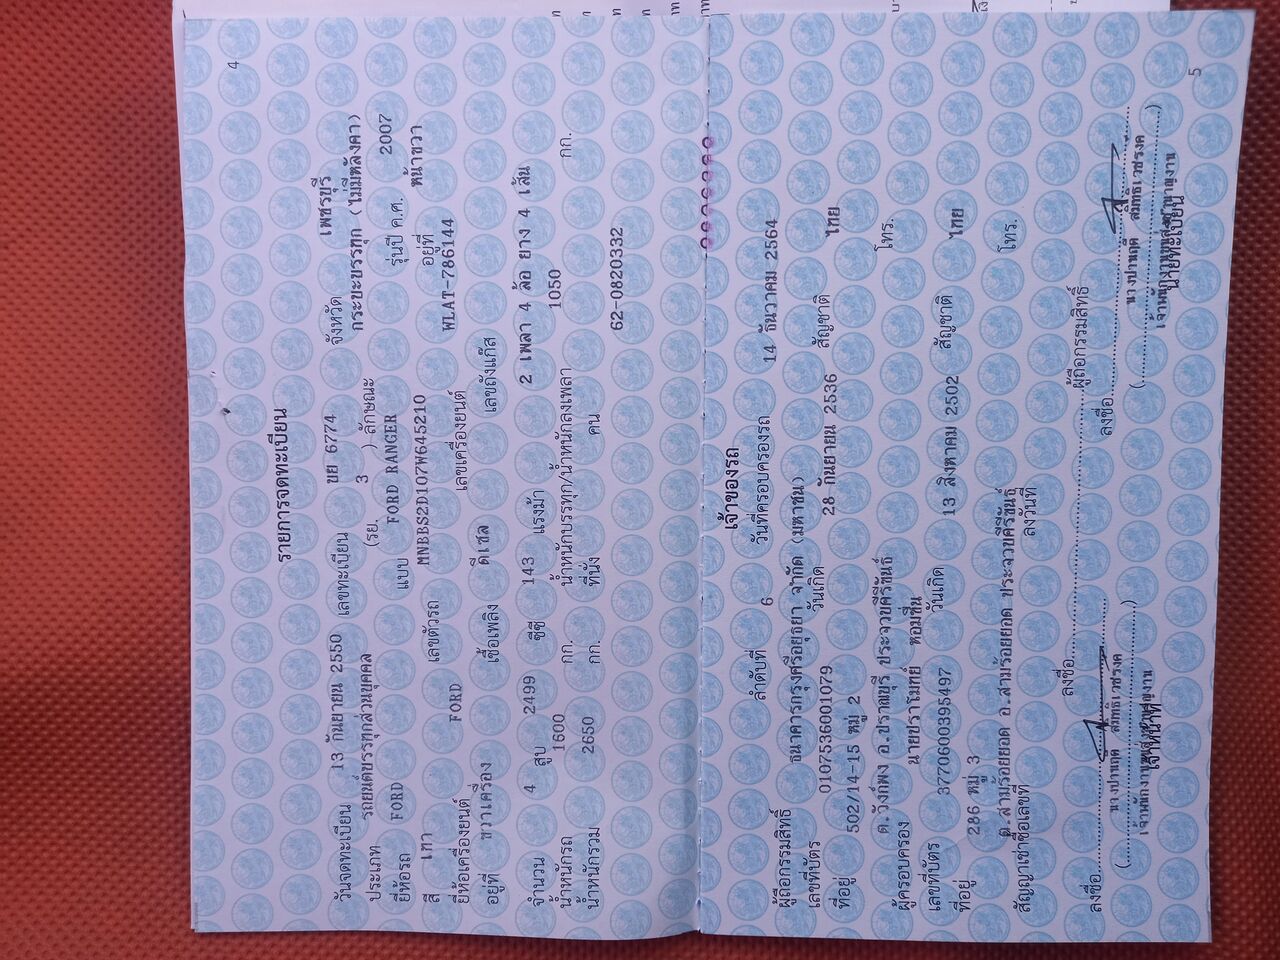 4
รายการจดทะเบียน
วันจดทะเบียน 13 กันยายน 2550 เลขทะเบียน ขย 6774 จังหวัด เพชรบุรี
ประเภท รถยนต์บรรทุกส่วนบุคคล (รย. 3 ) ลักษณะ กระบะบรรทุก (ไม่มีหลังคา)
ยี่ห้อรถ FORD แบบ FORD RANGER รุ่นปี ค.ศ. 2007
สี เทา เลขตัวรถ MNBBS2D107W645210 อยู่ที่ หน้าขวา
ยี่ห้อเครื่องยนต์ FORD เลขเครื่องยนต์ WLAT-786144
อยู่ที่ ขวาเครื่อง เชื้อเพลิง ดีเซล เลขถังแก๊ส
จำนวน 4 สูบ 2499 ซีซี 143 แรงม้า 2 เพลา 4 ล้อ ยาง 4 เส้น
น้ำหนักรถ 1600 กก. น้ำหนักบรรทุก/น้ำหนักลงเพลา 1050 กก.
น้ำหนักรวม 2650 กก. ที่นั่ง คน
62-0820332
เจ้าของรถ
ลำดับที่ 6 วันที่ครอบครองรถ 14 ธันวาคม 2564
ผู้ถือกรรมสิทธิ์ ธนาคารกรุงศรีอยุธยา จำกัด (มหาชน)
เลขที่บัตร 0107536001079 วันเกิด 28 กันยายน 2536 สัญชาติ ไทย
ที่อยู่ 502/14-15 หมู่ 2
ต.วังก์พง อ.ปราณบุรี ประจวบคีรีขันธ์ โทร.
ผู้ครอบครอง นายปราโมทย์ หอมชื่น
เลขที่บัตร 3770600395497 วันเกิด 13 สิงหาคม 2502 สัญชาติ ไทย
ที่อยู่ 286 หมู่ 3
ต.สามร้อยยอด อ.สามร้อยยอด ประจวบคีรีขันธ์ โทร.
สัญญาเช่าซื้อเลขที่ ลงวันที่
ลงชื่อ ผู้ถือกรรมสิทธิ์
ลงชื่อ ลงชื่อ
นางปานฤดี สิทธิเวชรงค นางปานฤดี สิทธิเวชรงค
( ) ( )
เจ้าพนักงานขนส่งชำนาญงาน เจ้าพนักงานขนส่งชำนาญงาน
เจ้าหน้าที่ นายทะเบียน
5